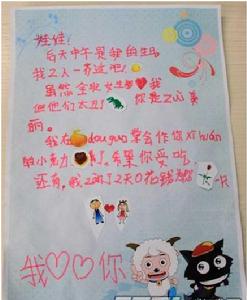 娃娃！
后天中午是我的生日
我2人一齐过吧！
虽然全班女生都我
但他们太丑！你是Zui美
丽。
我在douguo学会作你Xi huan
的小点力。希望你爱吃
还有，我2 2天0花
我 你